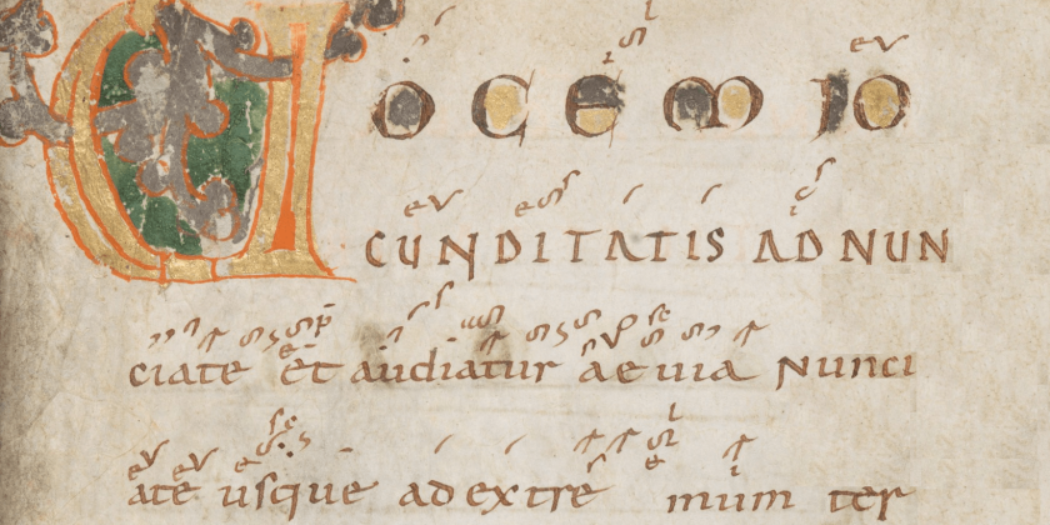 UOCEM IO
CUNDITATIS AD NUN
ciate et audiatur aeuia Nunci
ate usque ad extremum ter